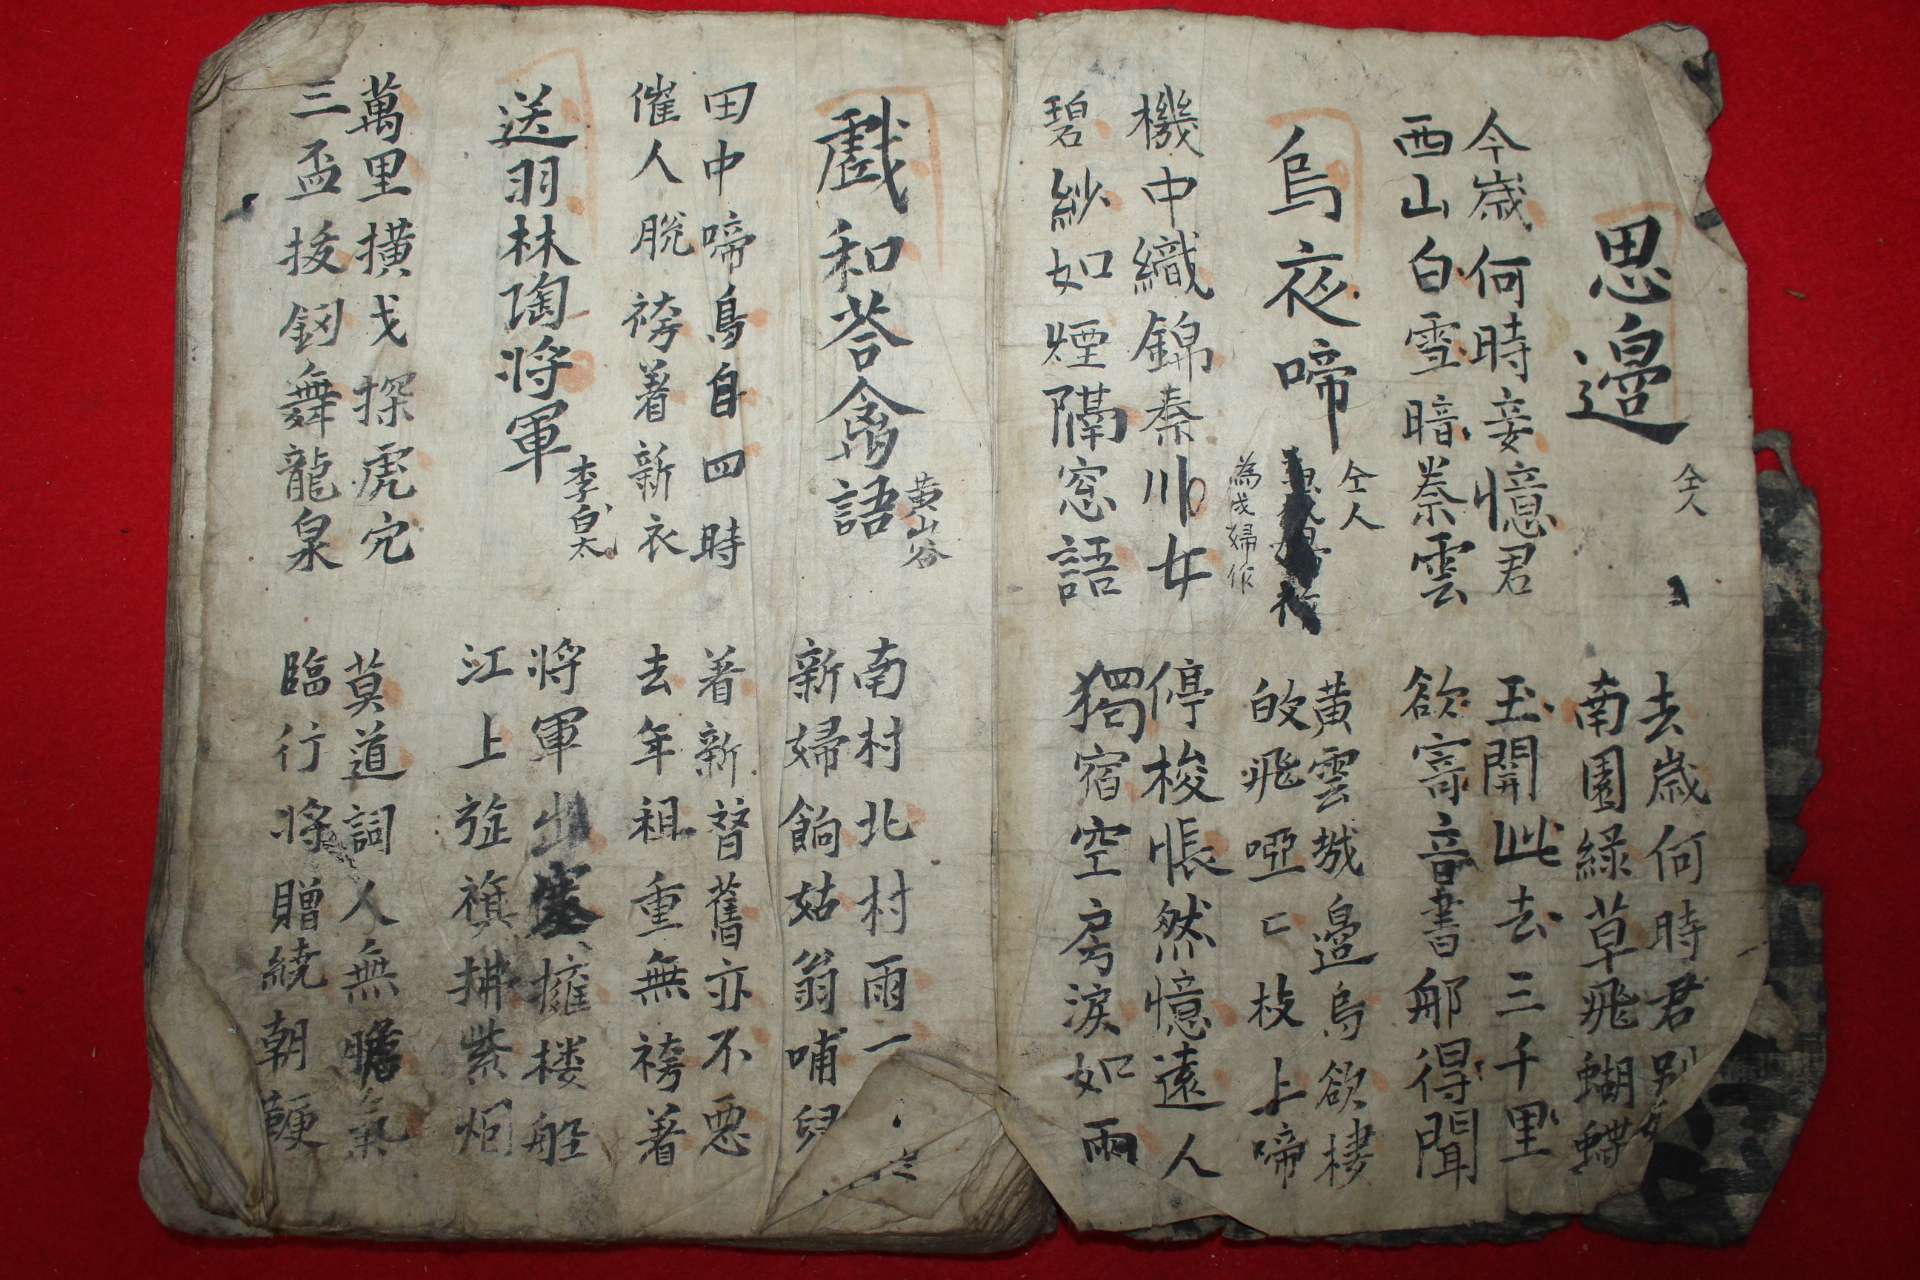 思邉
仝人
去歲何時君別妾
南園綠草飛蝴蝶
今歲何時妾憶君
西山白雪暗秦雲
玉関此去三千里
欲寄音書那得聞
烏夜啼
仝人
為戍婦作
黃雲城邉烏欲棲
皈飛啞〻枝上啼
機中織錦秦川女
碧紗如煙隔窓語
停梭悵然憶遠人
獨宿空房淚如雨
戱和荅禽語
黃山谷
南村北村雨一
新婦餉姑翁哺兒
田中啼鳥自四時
催人脫袴着新衣
着新替舊亦不惡
去年租重無袴著
送羽林陶将軍
李白太
将軍出塞擁楼舡
江上旌旗拂紫烟
萬里横戈探虎穴
三盃拔釖舞龍泉
莫道詞人無膽氣
臨行将贈繞朝鞭